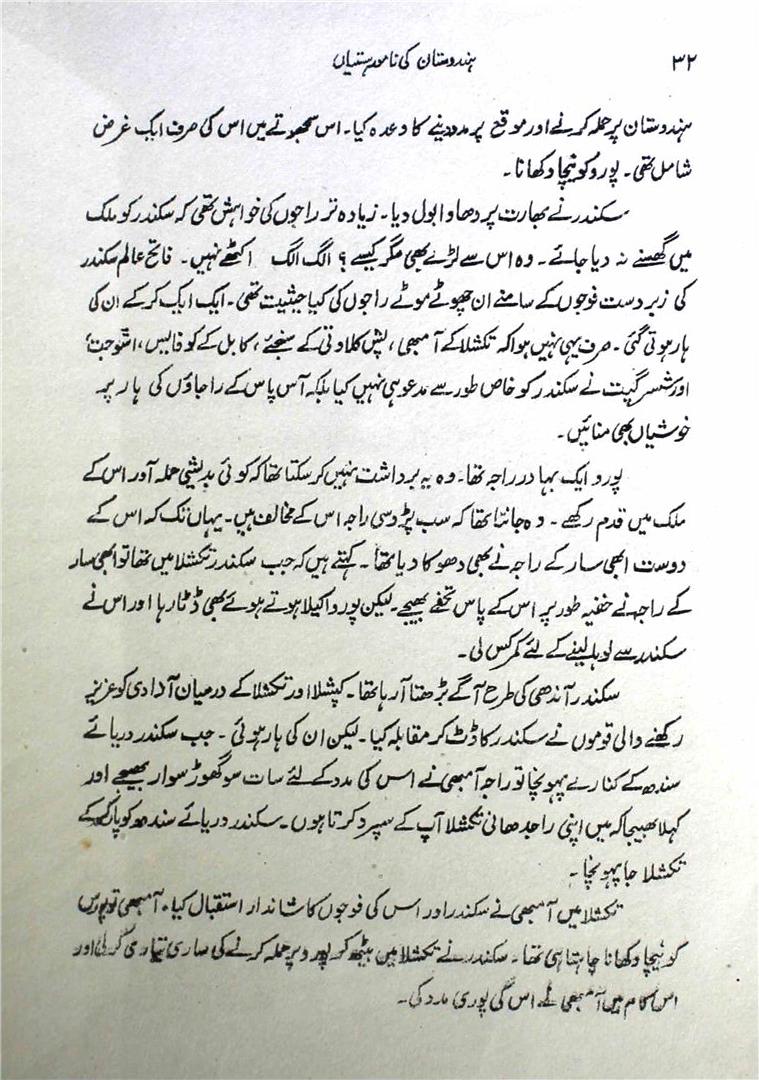 ۳۲
ہندوستان کی نامور ہستیاں
ہندوستان پر حملہ کرنے اور موقع پر مدد دینے کا وعدہ کیا۔ اس سمجھوتے میں اس کی صرف ایک غرض
شامل تھی۔ پورو کو نیچا دکھانا۔
سکندر نے بھارت پر دھاوا بول دیا۔ زیادہ تر راجوں کی خواہش تھی کہ سکندر کو ملک
میں گھسنے نہ دیا جائے۔ وہ اس سے لڑے بھی مگر کیسے؟ الگ الگ اکٹھے نہیں۔ فاتح عالم سکندر
کی زبردست فوجوں کے سامنے ان چھوٹے موٹے راجوں کی کیا حیثیت تھی۔ ایک ایک کر کے ان کی
ہار ہوتی گئی۔ صرف یہی نہیں ہوا کہ تکشلا کے آمبھی، پش کلاوتی کے سنجئے، کابل کے کوفایس، اشوجت
اور شسی گپت نے سکندر کو خاص طور سے مدعو ہی نہیں کیا بلکہ آس پاس کے راجاؤں کی ہار پر
خوشیاں بھی منائیں۔
پورو ایک بہادر راجہ تھا۔ وہ یہ برداشت نہیں کر سکتا تھا کہ کوئی بدیشی حملہ آور اس کے
ملک میں قدم رکھے۔ وہ جانتا تھا کہ سب پڑوسی راجہ اس کے مخالف ہیں۔ یہاں تک کہ اس کے
دوست ابھی سار کے راجہ نے بھی دھوکا دیا تھا۔ کہتے ہیں کہ جب سکندر تکشلا میں تھا تو ابھی سار
کے راجہ نے خفیہ طور پر اس کے پاس تحفے بھیجے۔ لیکن پورو اکیلا ہوتے ہوئے بھی ڈٹا رہا اور اس نے
سکندر سے لوہا لینے کے لئے کمر کس لی۔
سکندر آندھی کی طرح آگے بڑھتا آ رہا تھا۔ کپشلا اور تکشلا کے درمیان آزادی کو عزیز
رکھنے والی قوموں نے سکندر کا ڈٹ کر مقابلہ کیا۔ لیکن ان کی ہار ہوئی۔ جب سکندر دریائے
سندھ کے کنارے پہونچا تو راجہ آمبھی نے اس کی مدد کے لئے سات سو گھوڑ سوار بھیجے اور
کہلا بھیجا کہ میں اپنی راجدھانی تکشلا آپ کے سپرد کرتا ہوں۔ سکندر دریائے سندھ کو پار کر کے
تکشلا جا پہونچا۔
تکشلا میں آمبھی نے سکندر اور اس کی فوجوں کا شاندار استقبال کیا۔ آمبھی تو پورس
کو نیچا دکھانا چاہتا ہی تھا۔ سکندر نے تکشلا میں بیٹھ کر پورو پر حملہ کرنے کی ساری تیاری کر لی اور
اس کام میں آمبھی نے اس کی پوری مدد کی۔